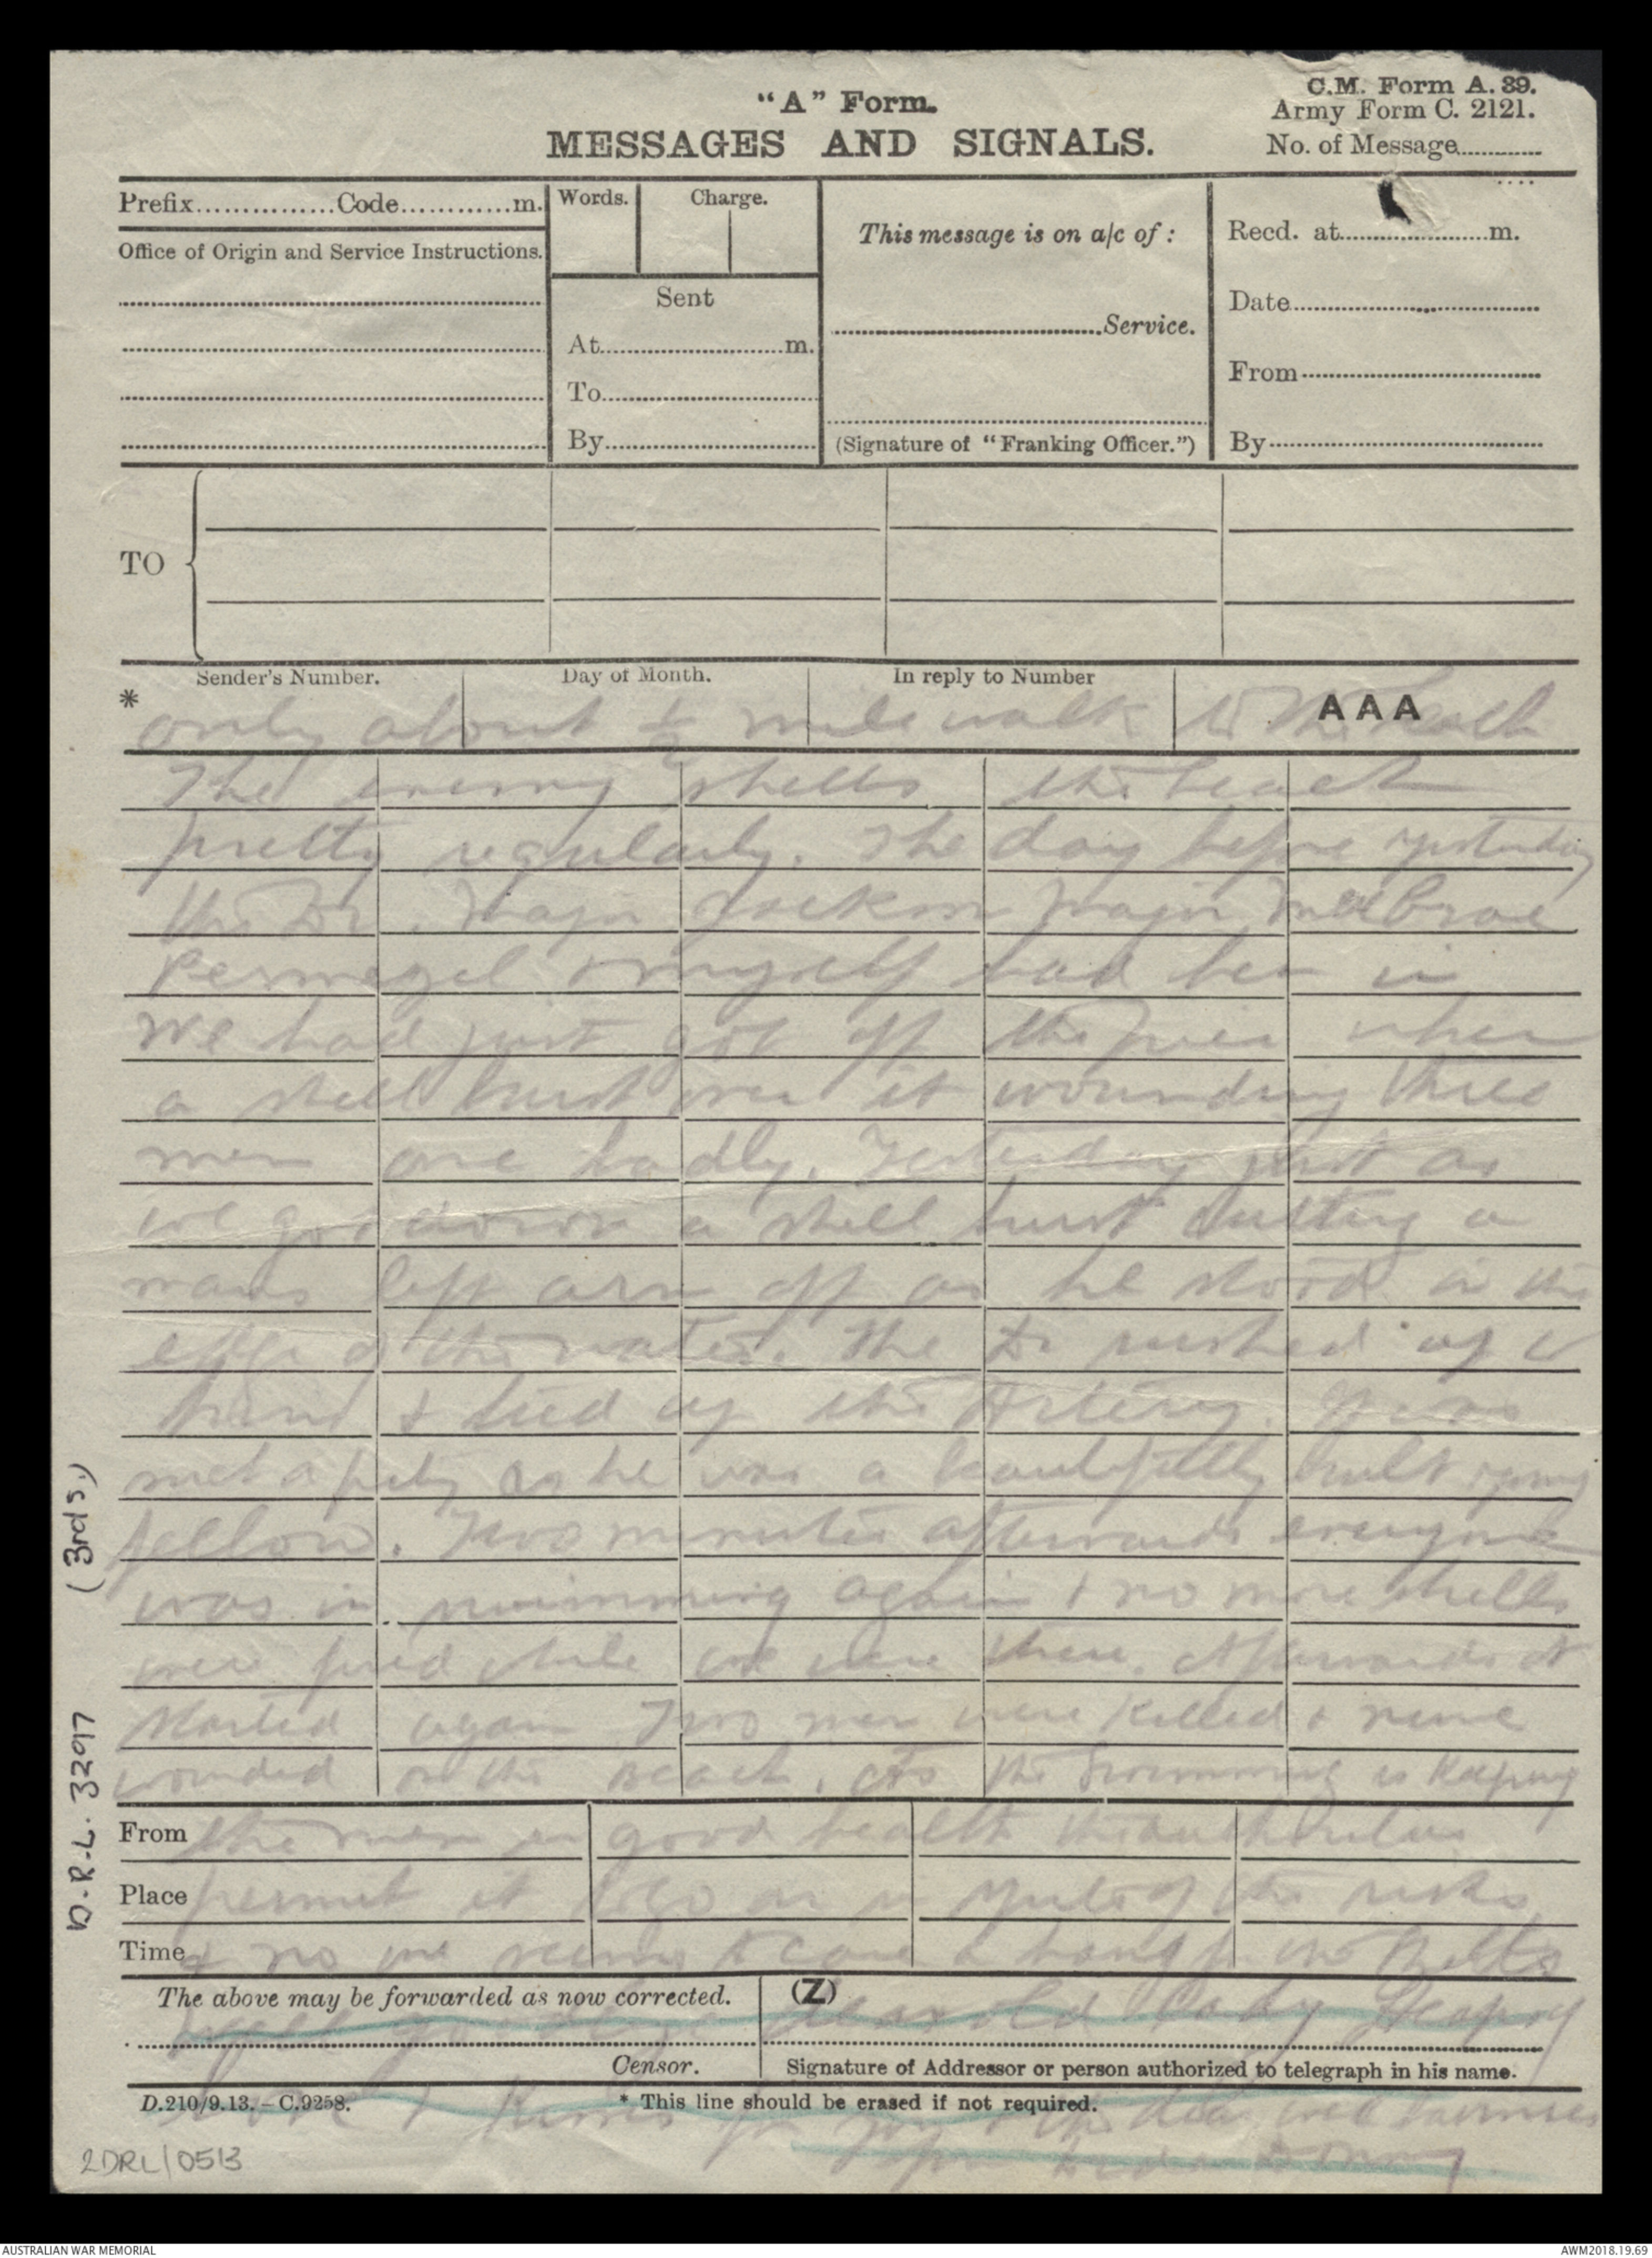 "A" Form.
MESSAGES AND SIGNALS.
C.M. Form A. 39.
Army Form C. 2121.
No. of Message............
Prefix...............Code............m.
Words.
Charge.
This message is on a/c of :
Recd. at......................m.
Office of Origin and Service Instructions.
Sent
Date
At...........................m.
Service.
From
To
By
(Signature of "Franking Officer.")
By
TO
Sender's Number.
Day of Month.
In reply to Number
AAA
* only about ½ mile walk to the beach
The enemy shells the beach
pretty regularly. The day before yesterday
the Dr. Major Jackson Major
& myself had been in
We had just got off the pier when
a shell burst over it wounding three
men one badly. Yesterday just as
we got down a shell burst cutting a
mans left arm off as he stood in the
edge of the water. The Dr rushed up to
him & tied up the Artery. It was
such a pity as he was a beautifully built young
fellow. Two minutes afterwards everyone
was in swimming again & no more shells
were fired while we were there. Afterwards it
started again Two men were killed & nine
wounded on the Beach. As the Swimming is keeping
From the men in good health the authorities
Place permit it to go on in spite of the risks
Time & no one seems to care a hang for the shells
The above may be forwarded as now corrected.
(Z)
Well goodbye dear old
Censor.
Signature of Addressor or person authorized to telegraph in his name.
D.210/9.13.–C.9258.
* This line should be erased if not required.
& kisses for you & the dear
2DRL/0513
D.R.L. 3297 (3rd s.)
AUSTRALIAN WAR MEMORIAL
AWM2018.19.69